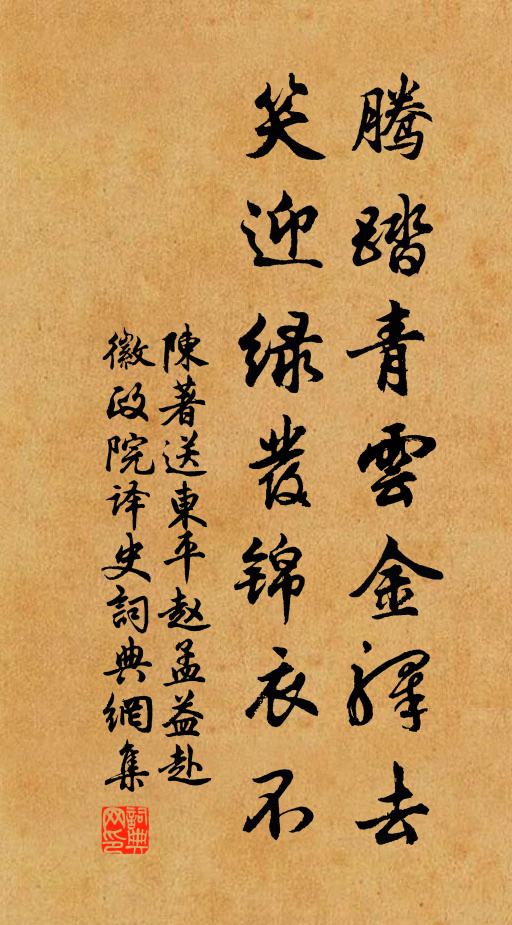 腾踏青雲金驛去
笑迎绿发錦衣不
陳著送東平赵孟益赴
徽政院译史詞典網集
詞典网印